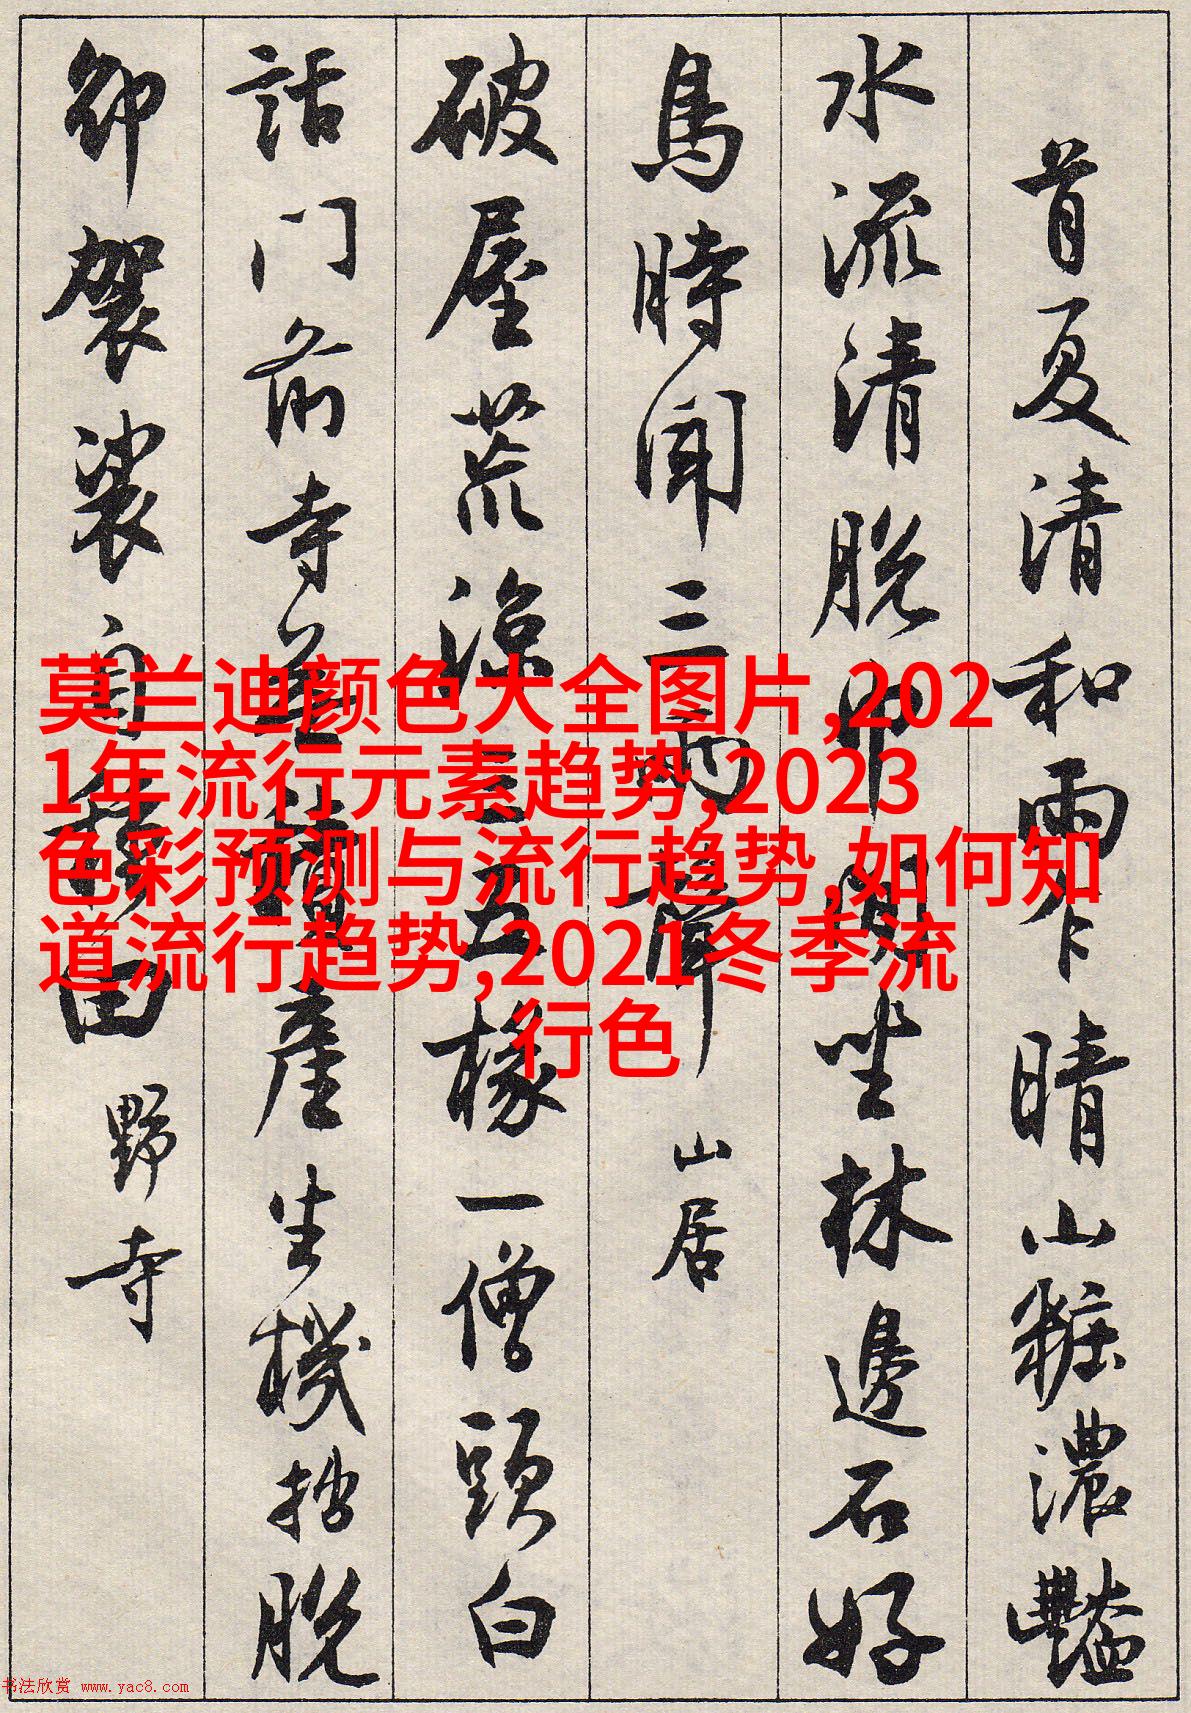 首夏清和雨乍晴山糚濃豔
水流清脫巾閒坐林邊石好
鳥時聞三兩聲 山居
破屋荒涼三五椽一僧頭白
話門前寺無產生機拙脫
卻袈裟自種田 野寺
莫兰迪颜色大全图片,202
1年流行元素趋势,2023
色彩预测与流行趋势,如何知
道流行趋势,2021冬季流
行色
书法欣赏 www.yac8.com